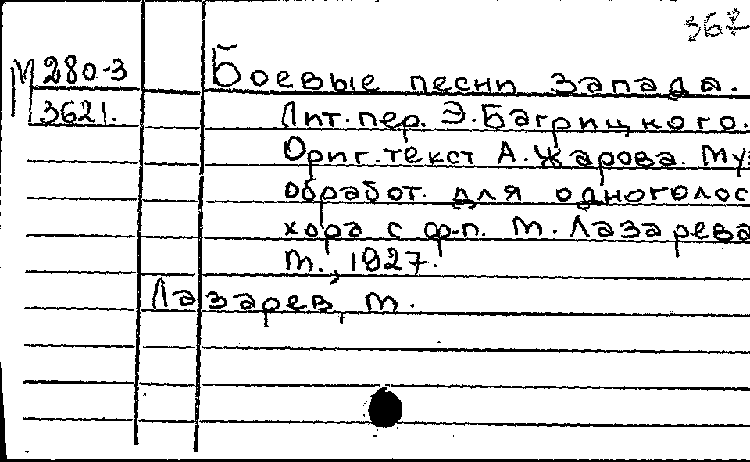 367
М 280-3
3621.
Боевые песни Запада.
Лит. пер. Э. Багрицкого.
Ориг. текст А. Жарова. Муз
обработ. для одноголос
хора с ф-п. М. Лазарева
М., 1927.
Лазарев, М.